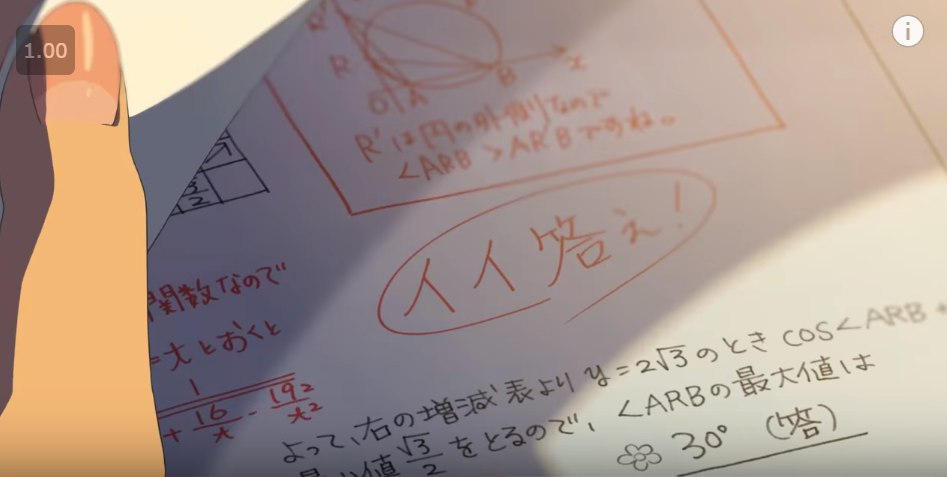 1.00
R'
R
B
x
O
A
R'は円の外側なので
∠ARB > AR'Bですね。
イイ答え!
3/2
関数なので
=tとおくと
1
+ 16/t - 192/t²
よって、右の増減表より y=2√3のとき COS∠ARB
√3/2をとるので、∠ARBの最大値は
30° (答)